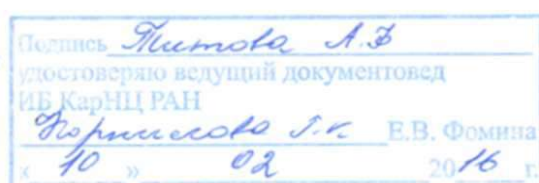 Подпись Титова А.Ф
удостоверяю ведущий документовед
ИБ КарНЦ РАН
Корнилова Г.К. Е.В. Фомина
« 10 » 02 2016 г.